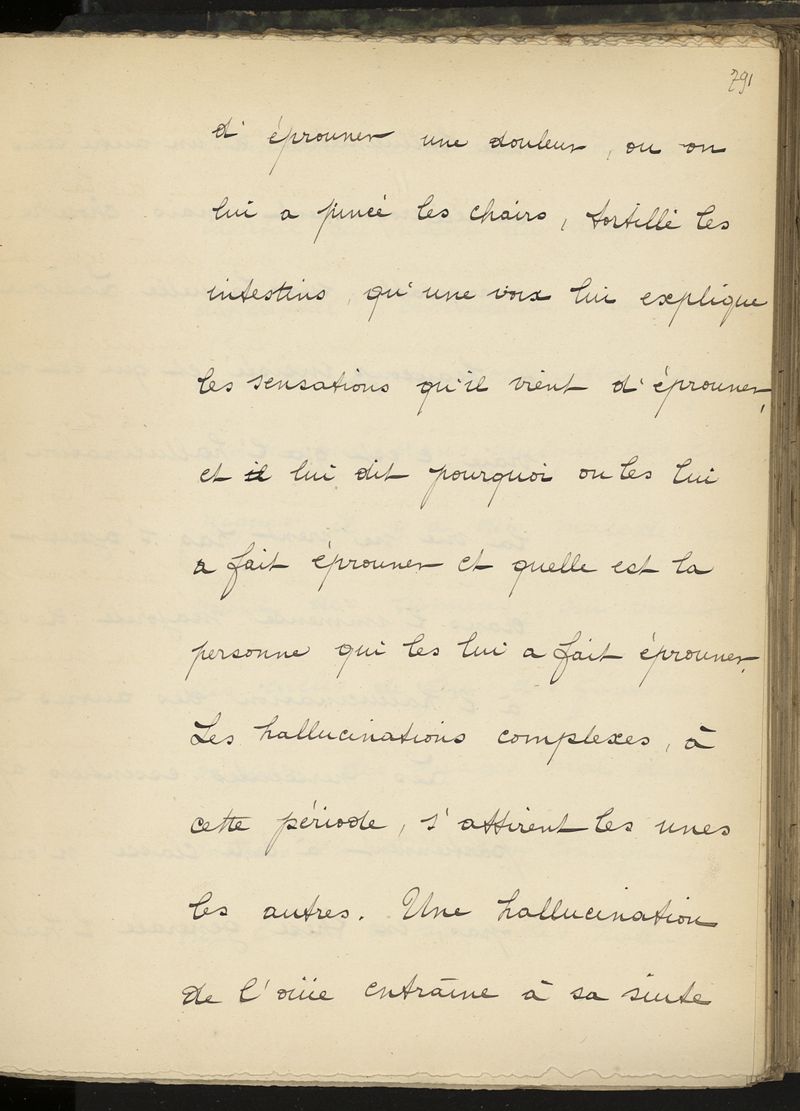 791
d'éprouver une douleur, ou on
lui a pincé les chairs, tortillé les
intestins, qu'une voix lui explique
les sensations qu'il vient d'éprouver,
et il lui dit pourquoi on les lui
a fait éprouver et quelle est la
personne qui les lui a fait éprouver.
Les hallucinations complexes, à
cette période, s'attirent les unes
les autres. Une hallucination
de l'ouïe entraîne à sa suite